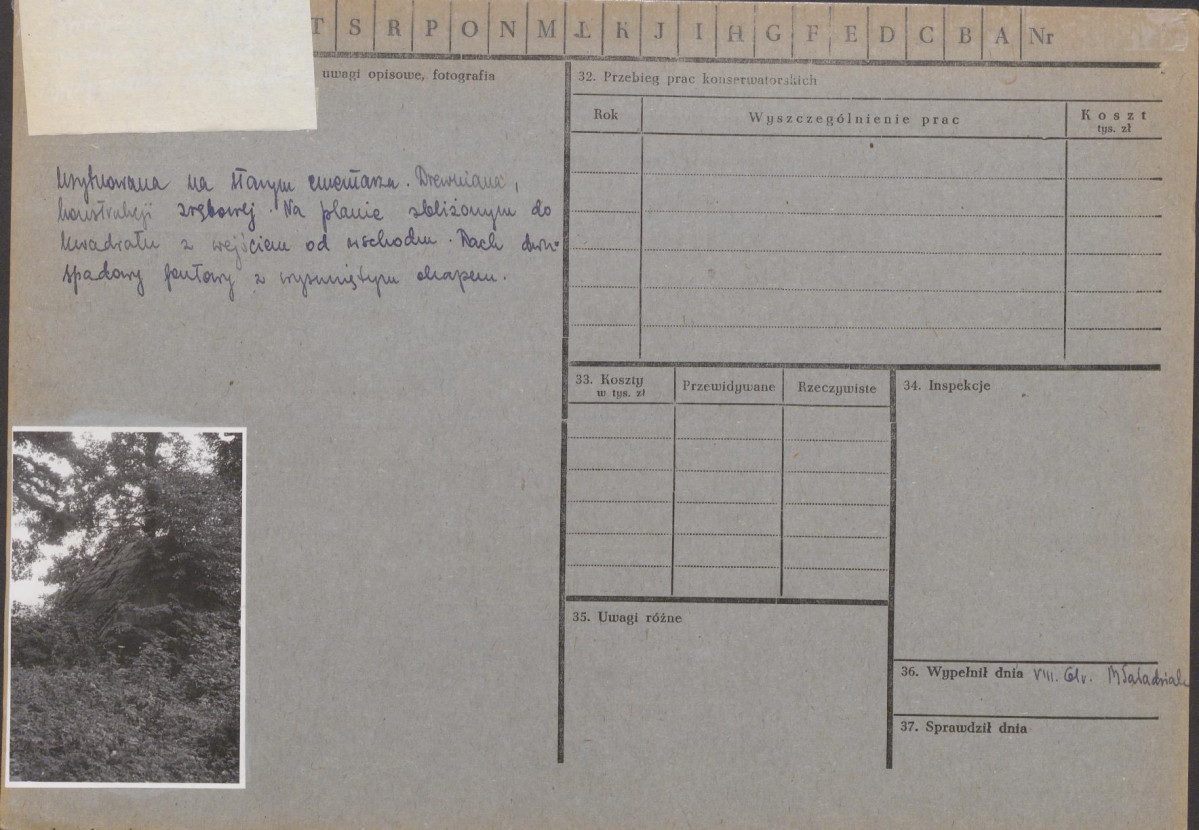 T S R P O N M Ł K J I H G F E D C B A Nr
uwagi opisowe, fotografia
Usytuowana na starym cmentarzu. Drewniana,
konstrukcji zrębowej. Na planie zbliżonym do
kwadratu z wejściem od wschodu. Dach dwu-
spadowy gontowy z wysuniętym okapem.
32. Przebieg prac konserwatorskich
Rok Wyszczególnienie prac Koszt
tys. zł
33. Koszty
w tys. zł
Przewidywane Rzeczywiste
34. Inspekcje
35. Uwagi różne
36. Wypełnił dnia VIII.
37. Sprawdził dnia